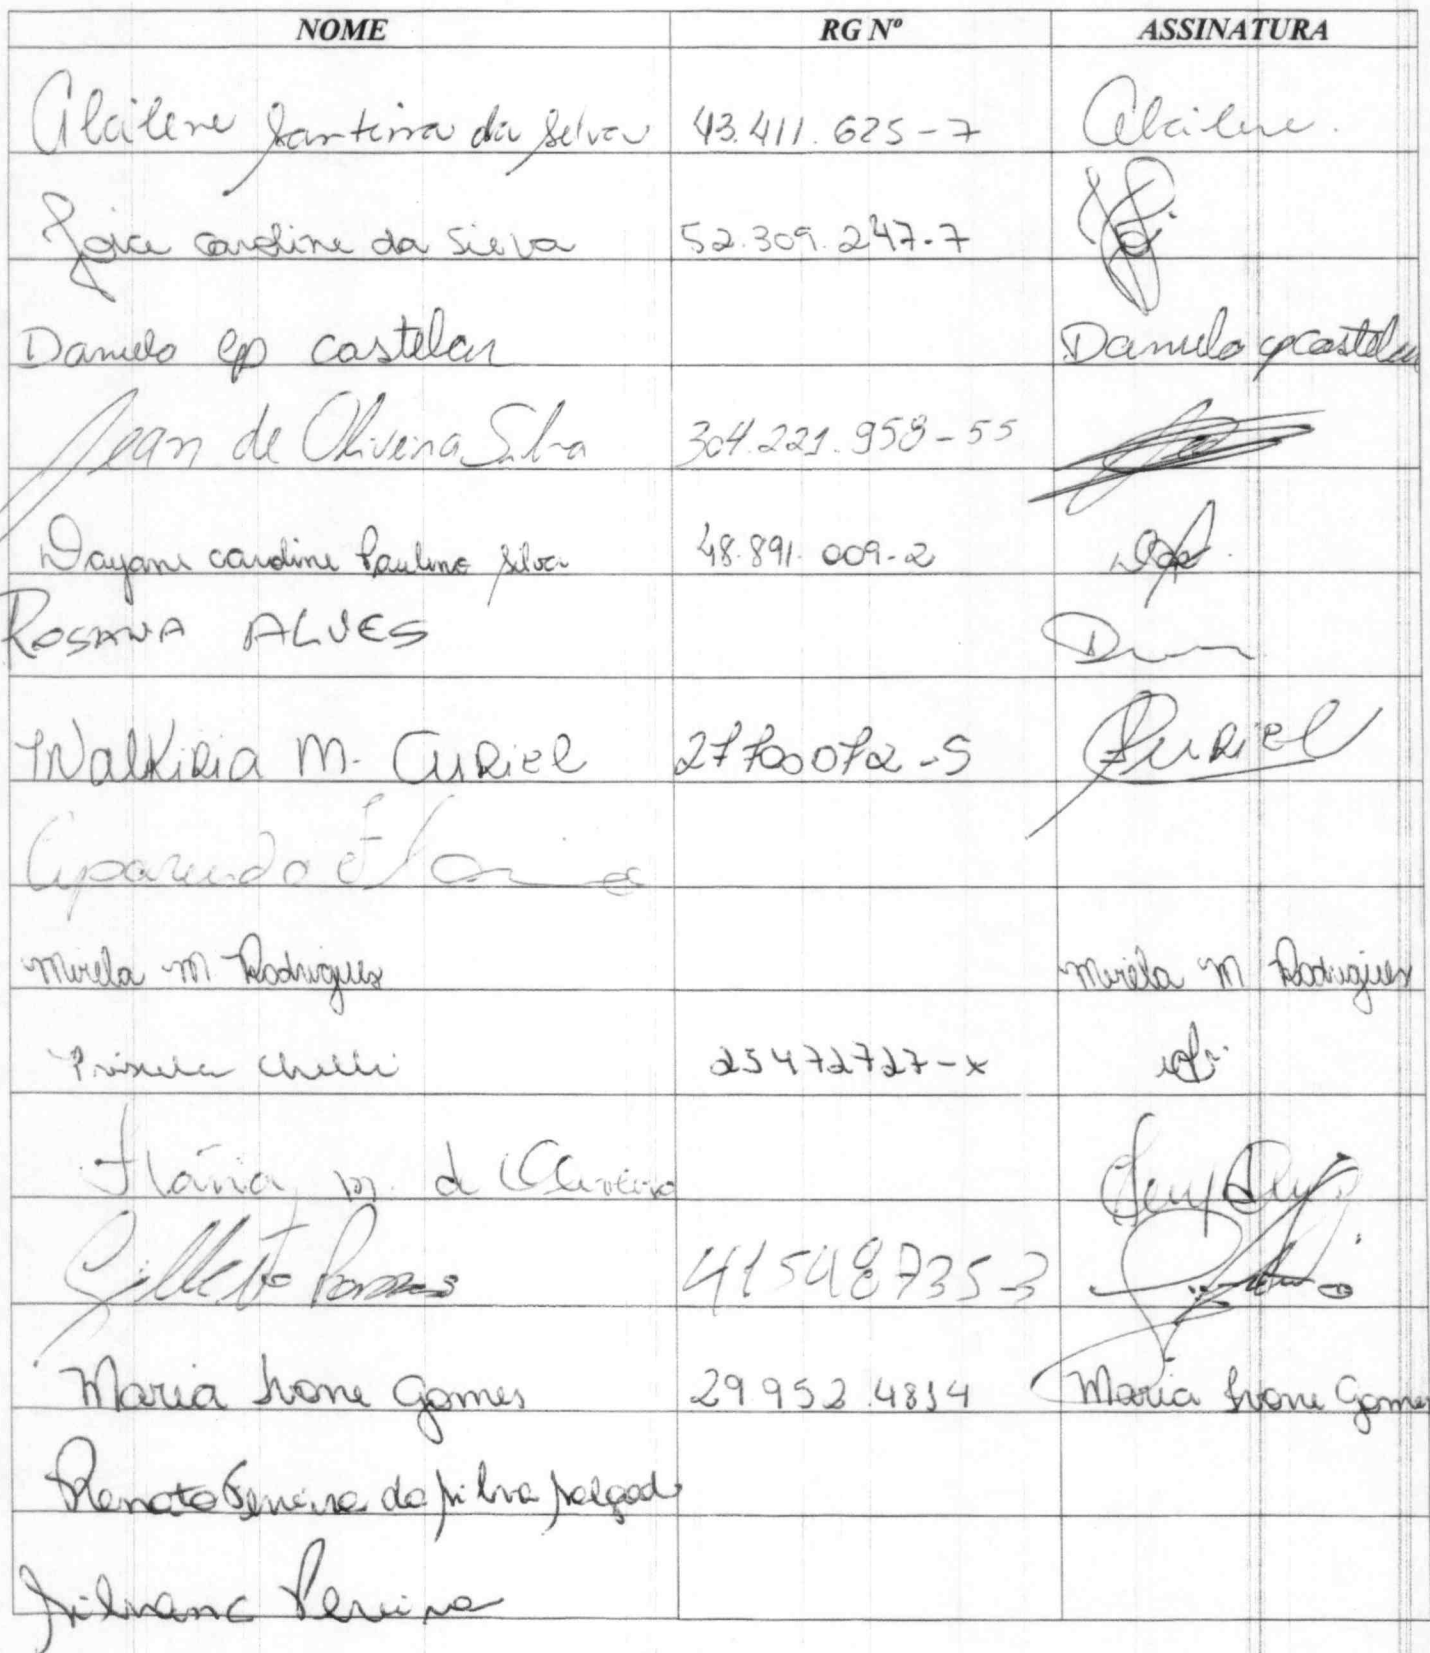 NOME RG Nº ASSINATURA
Alcilene Santina da Silva 43.411.625-7 Alcilene.
Joice caroline da Silva 52.309.247-7
Danielo cp castelan Danielo cp castelan
Jean de Oliveira Silva 304.221.958-55
Dayane caroline Paulino Silva 48.891.009-2
ROSANA ALVES
Walkiria M. Curiel 27700072-5 Curiel
Mirela M Rodrigues Mirela M Rodrigues
Priscila Chelli 25472727-x
Flávia m. de Oliveira
Gilberto 41548735-3
Maria Ivone Gomes 29 952.4814 Maria Ivone Gomes
Renato Ferreira da Silva Salgado
Silvana Pereira